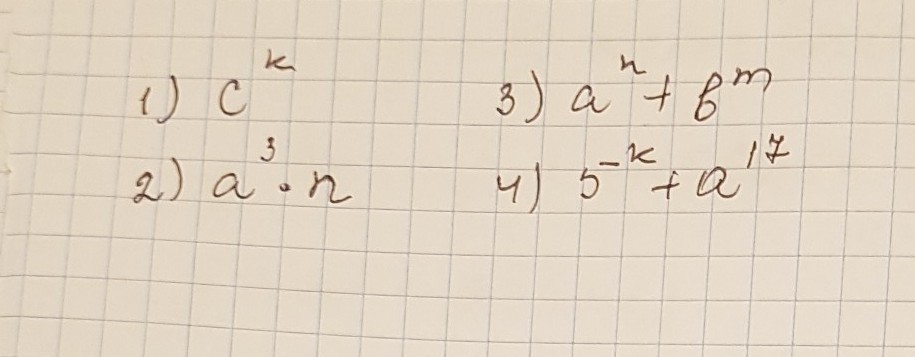 1) c^k
2) a^3 · n
3) a^n + b^m
4) 5^-k + a^17